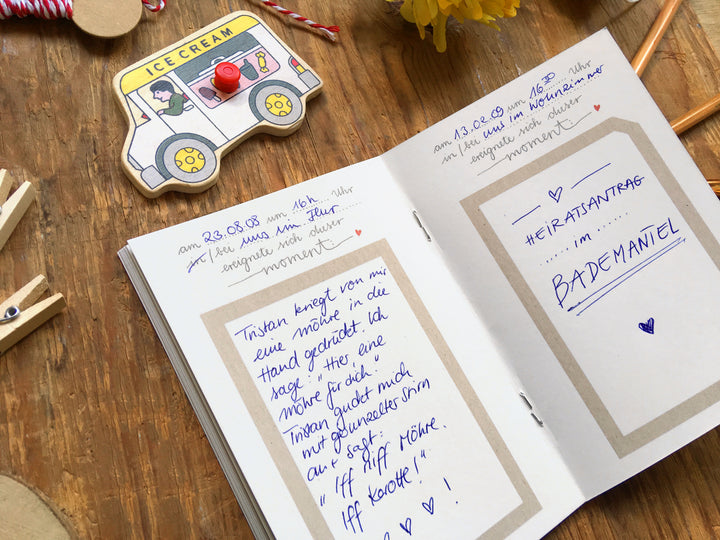 ICE CREAM
am 23.08.08 um 16h Uhr
in/bei uns im Flur
ereignete sich dieser
moment:
Tristan kriegt von mir
eine möhre in die
Hand gedrückt. Ich
sage: "Hier, eine
möhre für dich."
Tristan guckt mich
mit gerunzelter Stirn
an + sagt:
"Iff niff Möhre.
Iff Karotte!"
♡ ♡ !
am 13.02.09 um 16³⁰ Uhr
in/bei uns im Wohnzimmer
ereignete sich dieser
moment:
HEIRATSANTRAG
..... im ......
BADEMANTEL